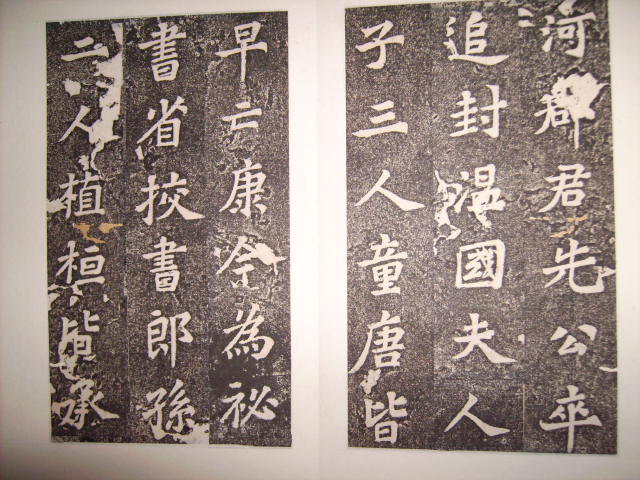 河郡君先公卒
追封温國夫人
子三人童唐皆
早亡康今為祕
書省挍書郎孫
二人植桓皆承